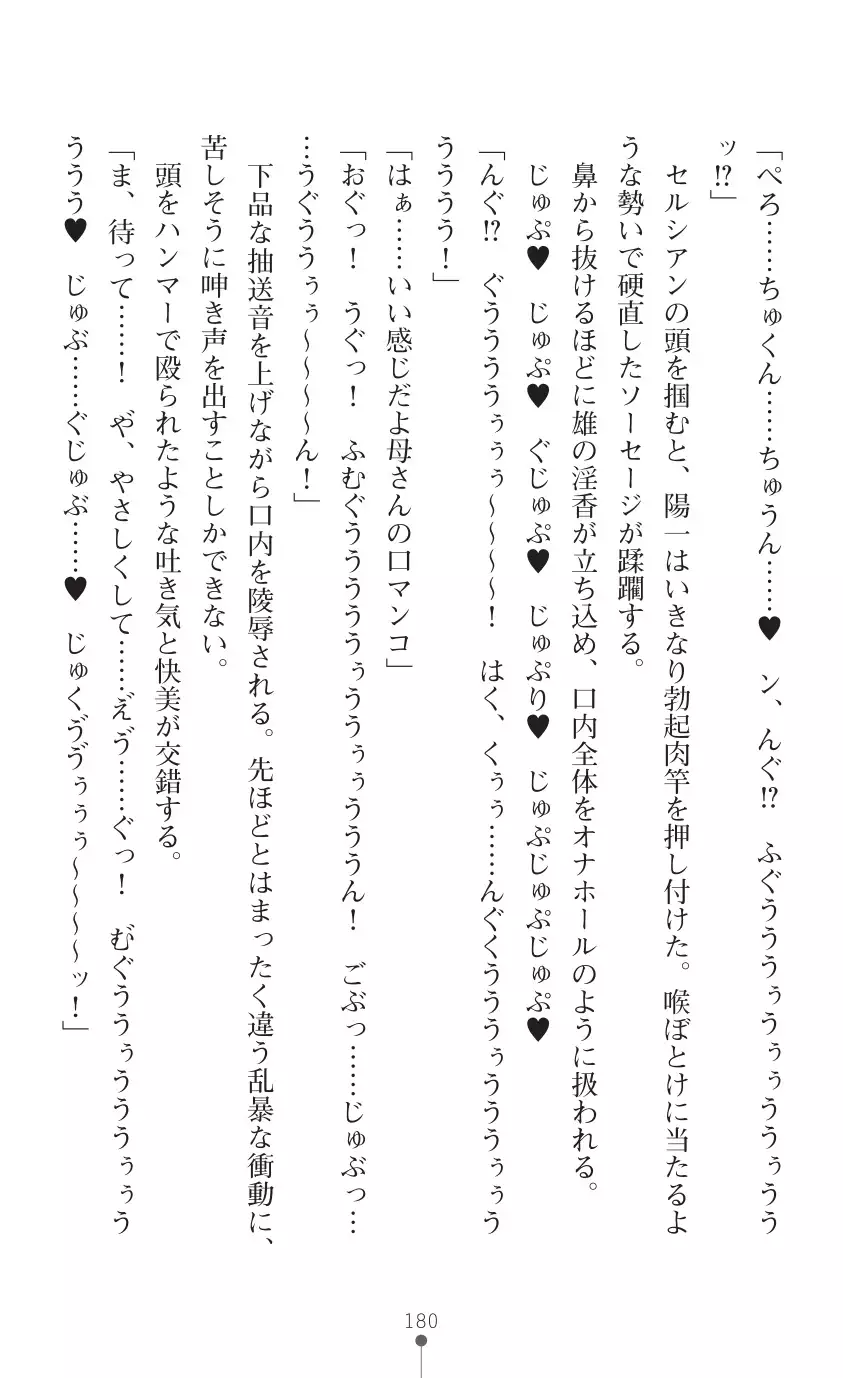 「ぺろ……ちゅくん……ちゅうん……♥　ン、んぐ!?　ふぐうううぅうぅぅううぅうう
ッ!?」
　セルシアンの頭を掴むと、陽一はいきなり勃起肉竿を押し付けた。喉ぼとけに当たるよ
うな勢いで硬直したソーセージが蹂躙する。
　鼻から抜けるほどに雄の淫香が立ち込め、口内全体をオナホールのように扱われる。
　じゅぷ♥　じゅぷ♥　ぐじゅぷ♥　じゅぷり♥　じゅぷじゅぷじゅぷ♥
「んぐ!?　ぐうううぅぅぅ～～～～！　はく、くぅぅ……んぐくうううぅうううぅぅう
うううう！」
「はぁ……いい感じだよ母さんの口マンコ」
「おぐっ！　うぐっ！　ふむぐうううううぅううぅぅうううん！　ごぶっ……じゅぶっ…
…うぐううぅぅ～～～～ん！」
　下品な抽送音を上げながら口内を陵辱される。先ほどとはまったく違う乱暴な衝動に、
苦しそうに呻き声を出すことしかできない。
　頭をハンマーで殴られたような吐き気と快美が交錯する。
「ま、待って……！　や゛、やさしくして……え゛ゔ……ぐっ！　む゛ぐううぅうううぅぅう
ううう♥　じゅぶ……ぐじゅぶ……♥　じゅくゔゔぅぅぅ～～～～ッ！」
180